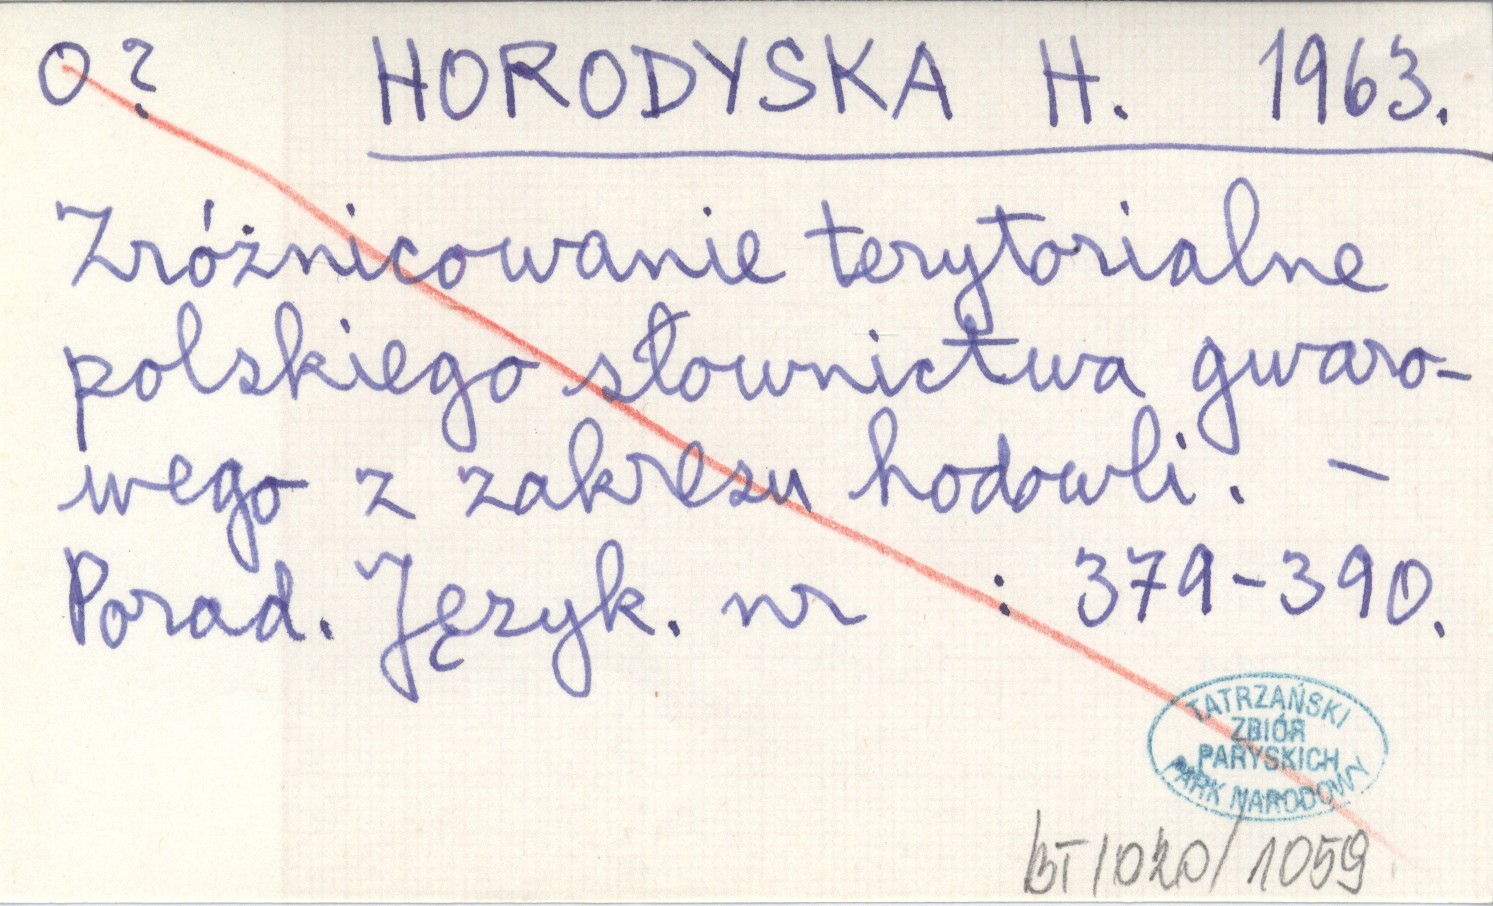 O? HORODYSKA H. 1963.
Zróżnicowanie terytorialne
polskiego słownictwa gwaro-
wego z zakresu hodowli. –
Porad. Język. nr : 379-390.
TATRZAŃSKI
ZBIÓR
PARYSKICH
PARK NARODOWY
BT/020/1059